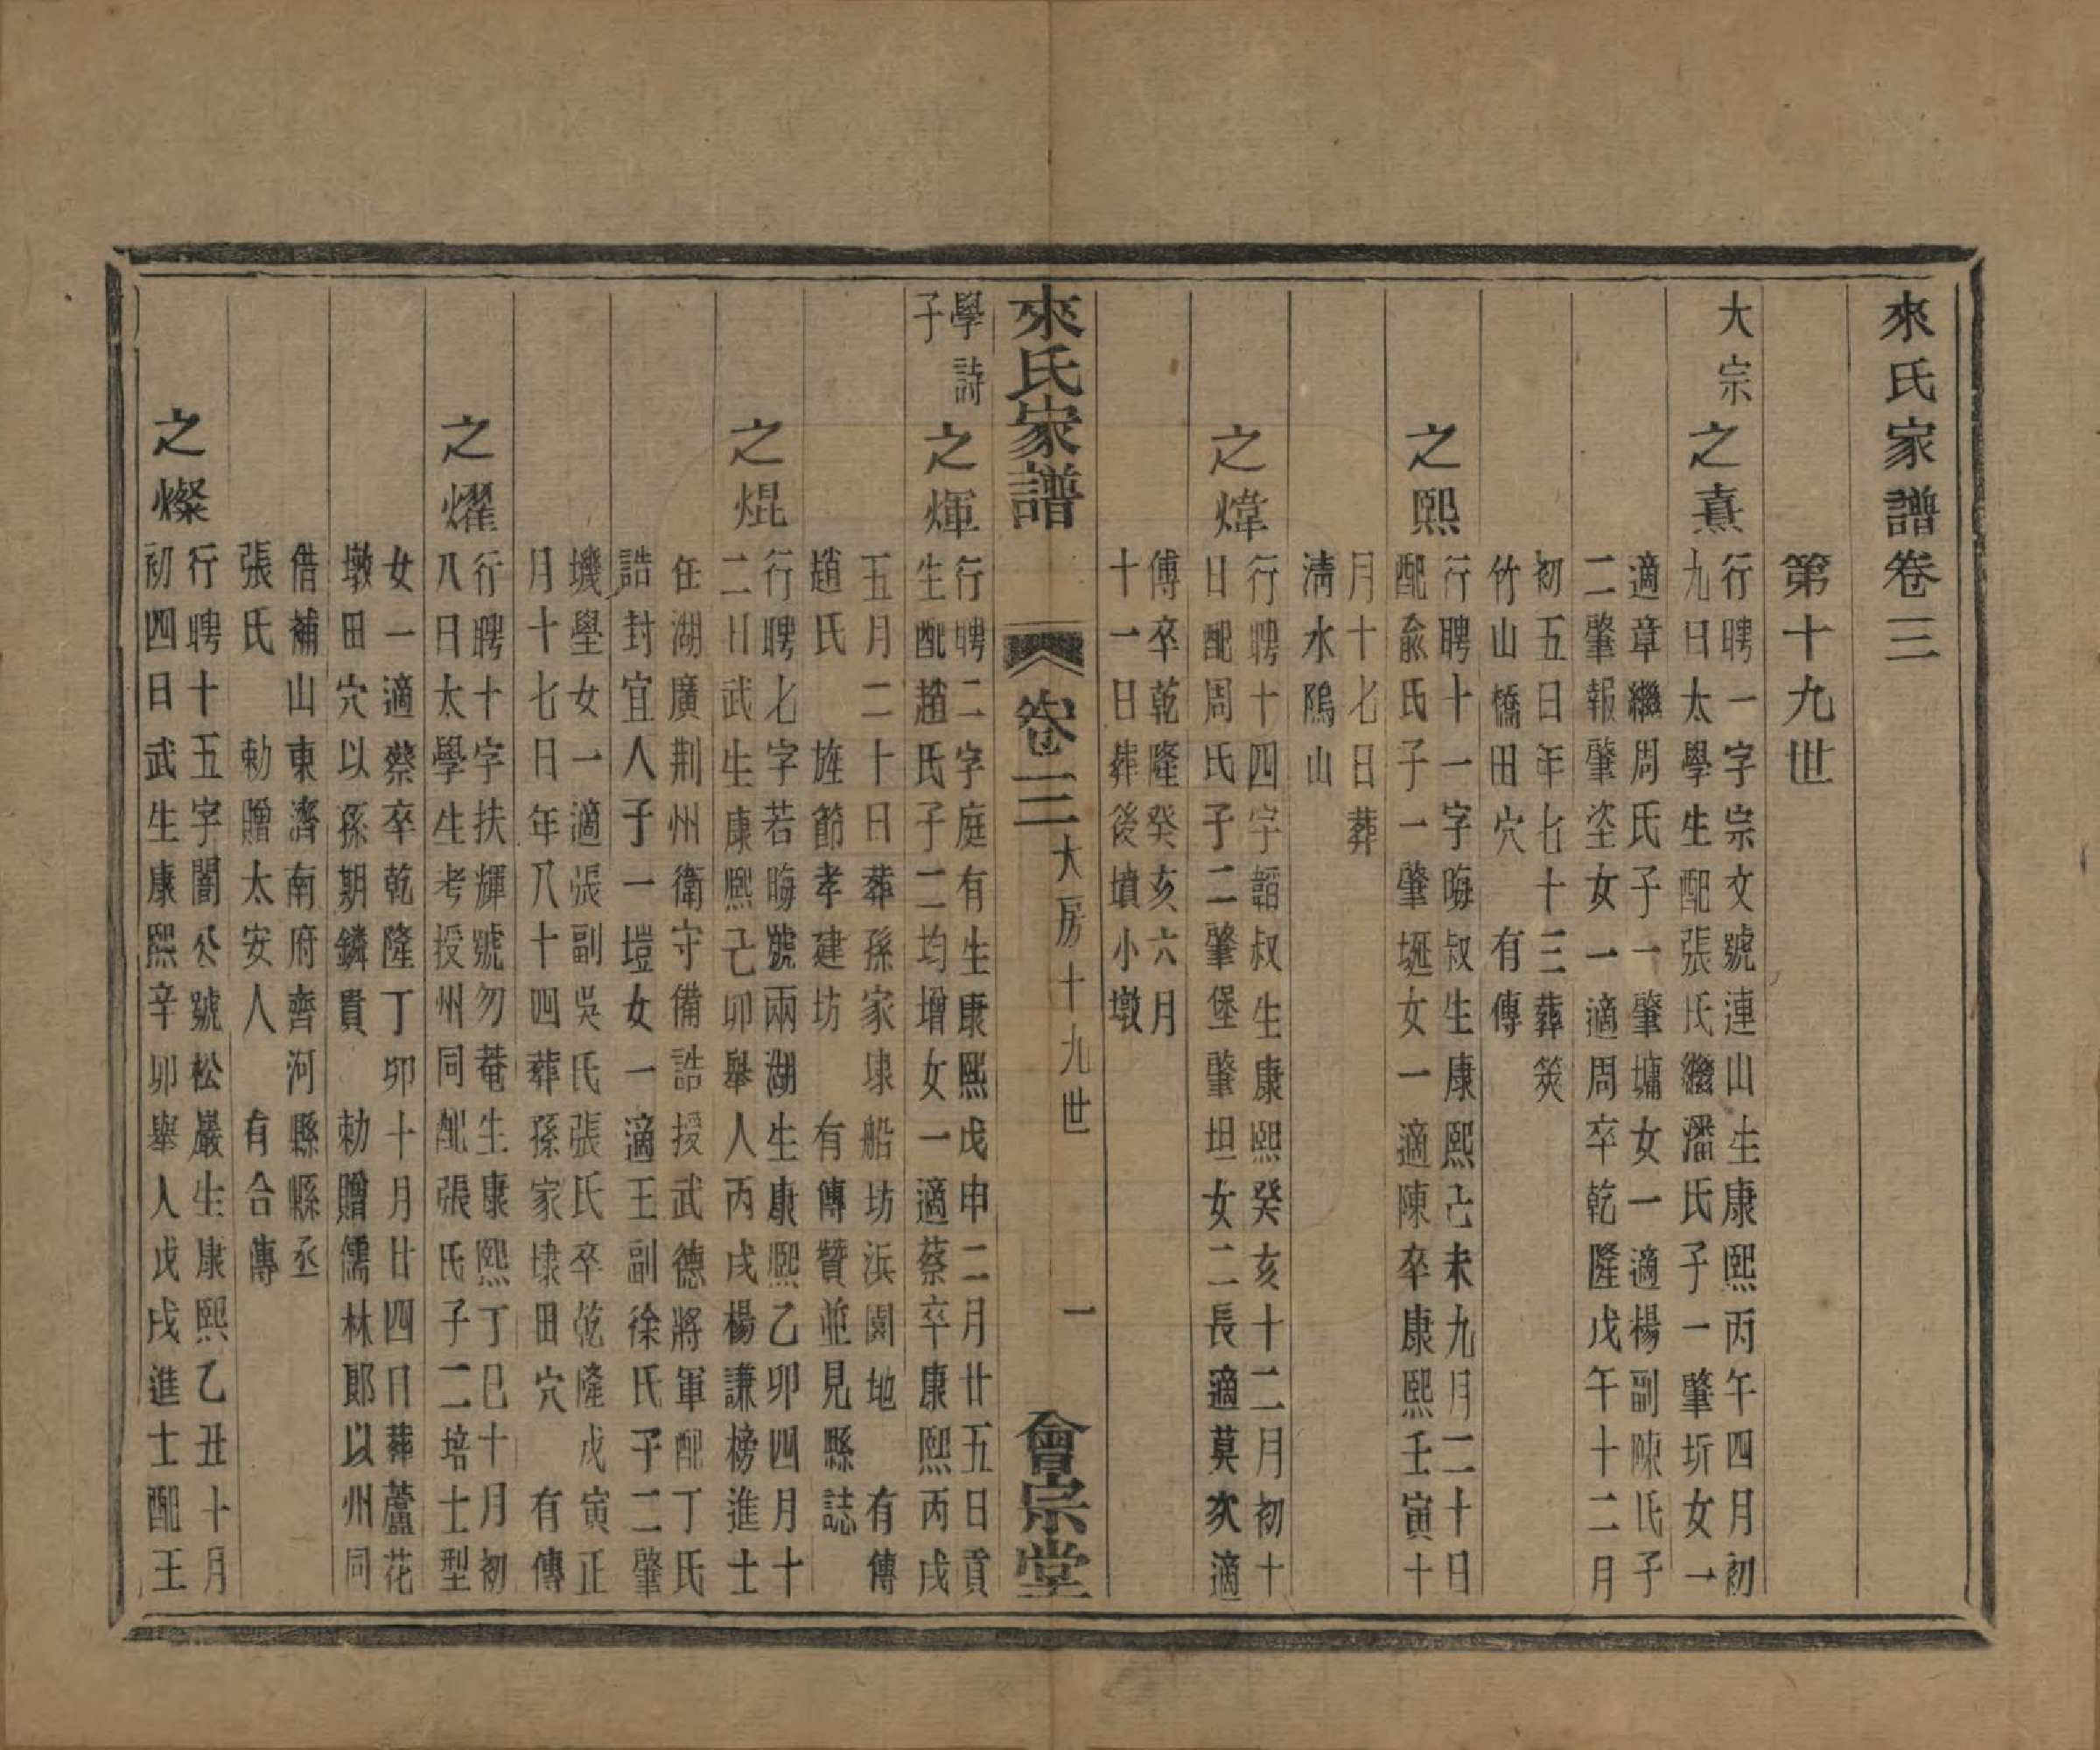 來氏家譜卷三
第十九世
大宗
之熹
行聘一字宗文號連山生康熙丙午四月初
九日太學生配張氏繼潘氏子一肇圻女一
適章繼周氏子一肇墉女一適楊副陳氏子
二肇報肇垐女一適周卒乾隆戊午十二月
初五日年七十三葬筴
竹山橋田穴　有傳
之熙
行聘十一字晦叔生康熙己未九月二十日
配兪氏子一肇埏女一適陳卒康熙壬寅十
月十七日葬
淸水隖山
之煒
行聘十四字韜叔生康熙癸亥十二月初十
日配周氏子二肇堡肇坦女二長適莫次適
傅卒乾隆癸亥六月
十一日葬後墳小墩
來氏家譜　卷三　大房十九世　一　會宗堂
學詩
子
之煇
行聘二字庭有生康熙戊申二月廿五日貢
生配趙氏子二均增女一適蔡卒康熙丙戌
五月二十日葬孫家埭船坊浜園地　有傳
趙氏　旌節孝建坊　有傳贊並見縣誌
之焜
行聘七字若晦號兩湖生康熙乙卯四月十
二日武生康熙己卯舉人丙戌楊謙榜進士
任湖廣荆州衛守備誥授武德將軍配丁氏
誥封宜人子一塏女一適王副徐氏子二肇
墢壆女一適張副吳氏張氏卒乾隆戊寅正
月十七日年八十四葬孫家埭田穴　有傳
之燿
行聘十字扶輝號勿菴生康熙丁巳十月初
八日太學生考授州同配張氏子二培士型
女一適蔡卒乾隆丁卯十月廿四日葬蘆花
墩田穴以孫期鏻貴　勅贈儒林郞以州同
借補山東濟南府齊河縣縣丞
張氏　勅贈太安人　有合傳
之燦
行聘十五字闇公號松巖生康熙乙丑十月
初四日武生康熙辛卯舉人戊戌進士配王